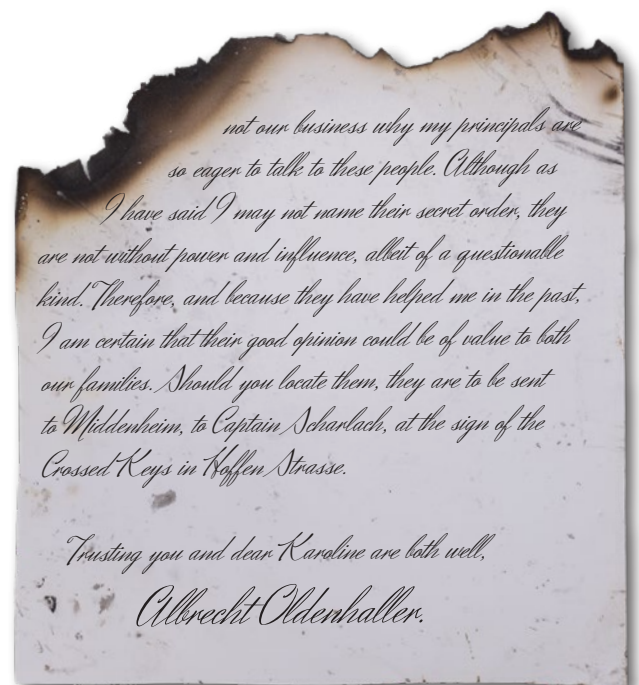 not our business why my principals are
so eager to talk to these people. Although as
I have said I may not name their secret order, they
are not without power and influence, albeit of a questionable
kind. Therefore, and because they have helped me in the past,
I am certain that their good opinion could be of value to both
our families. Should you locate them, they are to be sent
to Middenheim, to Captain Scharlach, at the sign of the
Crossed Keys in Hoffen Strasse.
Trusting you and dear Karoline are both well,
Albrecht Oldenhaller.